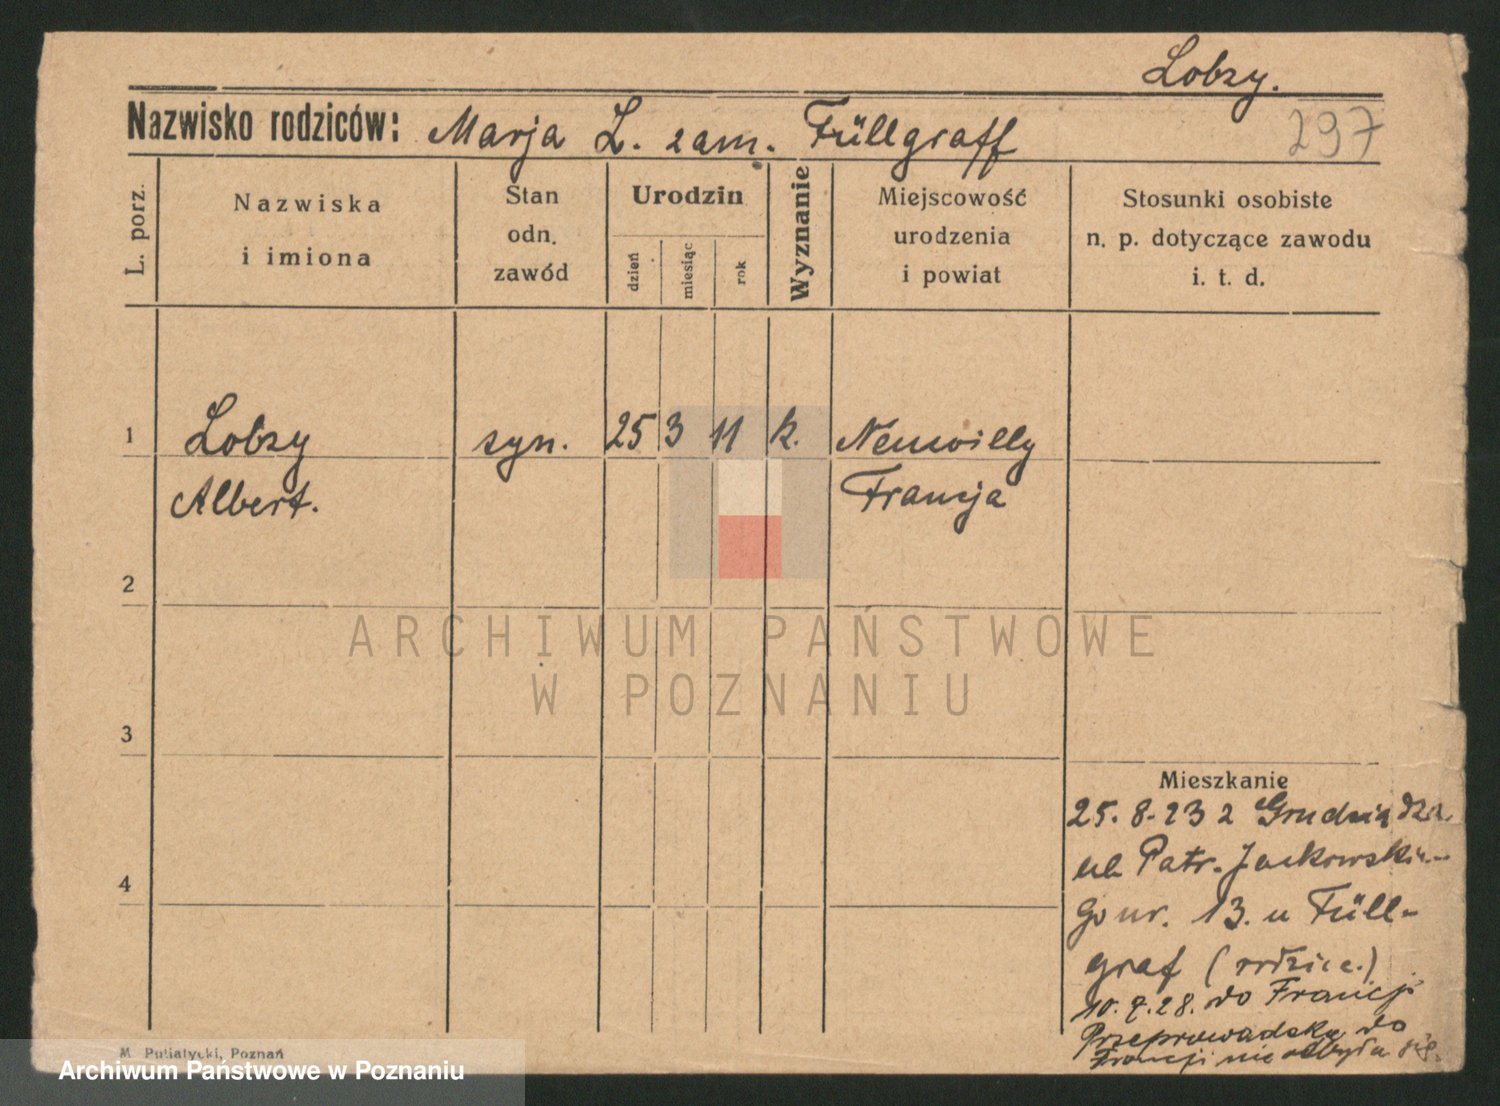 Lobzy.
297
Nazwisko rodziców: Marja L. zam. Füllgraff
L. porz.
Nazwiska
i imiona
Stan
odn.
zawód
Urodzin
dzień
miesiąc
rok
Wyznanie
Miejscowość
urodzenia
i powiat
Stosunki osobiste
n. p. dotyczące zawodu
i. t. d.
1 Lobzy syn. 25 3 11 k. Neuwilly
Albert. Francja
2
ARCHIWUM PAŃSTWOWE
W POZNANIU
3
4
Mieszkanie
25. 8. 23 z Grudziądza.
ul. Patr. Jackowskie-
go nr. 13. u Füll-
graf (rodzice.)
10. 7. 28. do Francji
Przeprowadzka do
Francji nie odbyła się.
M. Putiatycki, Poznań
Archiwum Państwowe w Poznaniu